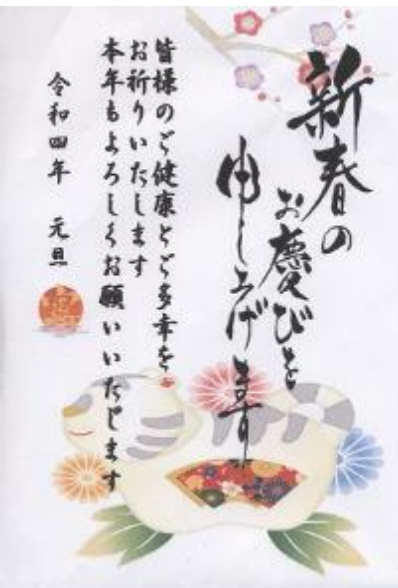 新春の
お慶びを
申し上げます
皆様のご健康とご多幸を
お祈りいたします
本年もよろしくお願いいたします
令和四年 元旦